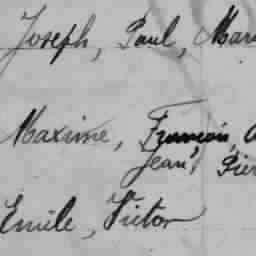 Joseph, Paul, Mari
Maxime, François,
Jean, Pier
Emile, Victor